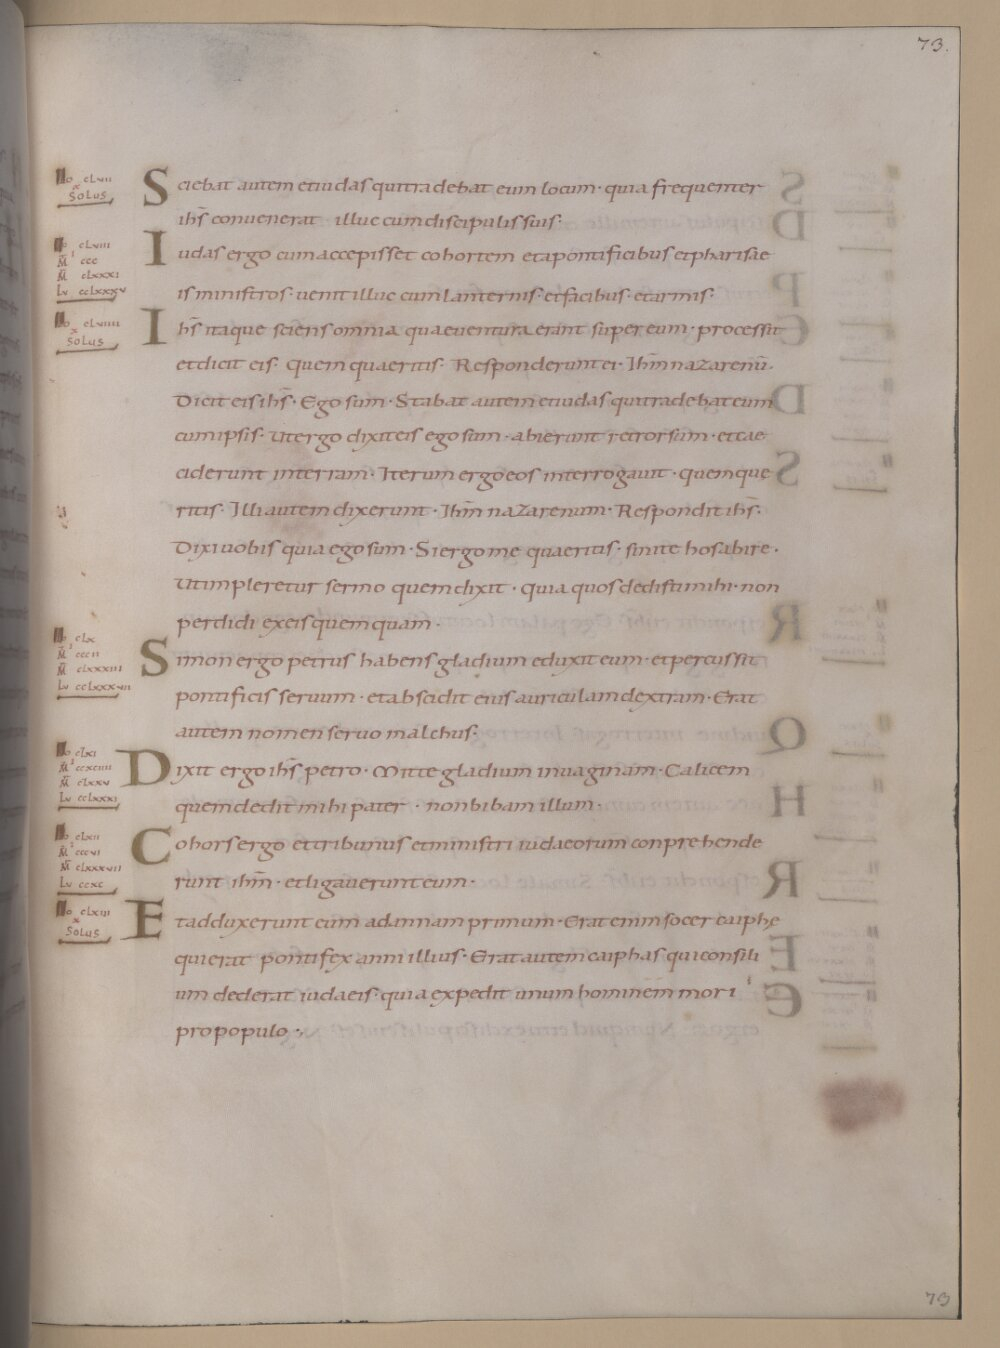 73.
Io clvii
x
solus
Sciebat autem et iudas qui tradebat eum locum · quia frequenter
ihs̄ convenerat illuc cum discipulis suis·
Io clviii
M̄ ccc
M̄ clxxxi
Lu cclxxxv
Iudas ergo cum accepisset cohortem et a pontificibus et pharisae
is ministros· uenit illuc cum lanternis· et facibus· et armis·
Io clviiii
x
solus
Ihs̄ itaque sciens omnia quae uentura erant super eum· processit
et dicit eis· quem quaeritis· Responderunt ei· Ihm̄ nazarenū·
Dicit eis ihs̄· Ego sum· Stabat autem et iudas qui tradebat eum
cum ipsis· Ut ergo dixit eis ego sum· abierunt retrorsum· et cae
ciderunt in terram· Iterum ergo eos interrogauit· quem que
ritis· Illi autem dixerunt· Ihm̄ nazarenum· Respondit ihs̄·
Dixi uobis quia ego sum· Si ergo me quaeritis· sinite hos abire·
Ut impleretur sermo quem dixit· quia quos dedisti mihi· non
perdidi ex eis quemquam·
Io clx
M̄ cccii
M̄ clxxxiii
Lu cclxxxvii
Simon ergo petrus habens gladium eduxit eum· et percussit
pontificis seruum· et abscidit eius auriculam dextram· Erat
autem nomen seruo malchus·
Io clxi
M̄ ccxciiii
M̄ clxxv
Lu cclxxxi
Dixit ergo ihs̄ petro· Mitte gladium in uaginam· Calicem
quem dedit mihi pater · non bibam illum·
Io clxii
M̄ cccvi
M̄ clxxxvii
Lu ccxc
Cohors ergo et tribunus et ministri iudaeorum conprehende
runt ihm̄· et ligauerunt eum·
Io clxiii
x
solus
Et adduxerunt eum ad annam primum· Erat enim socer caiphe
qui erat pontifex anni illius· Erat autem caiphas qui consili
um dederat iudaeis· quia expedit unum hominem mori
pro populo·,
79